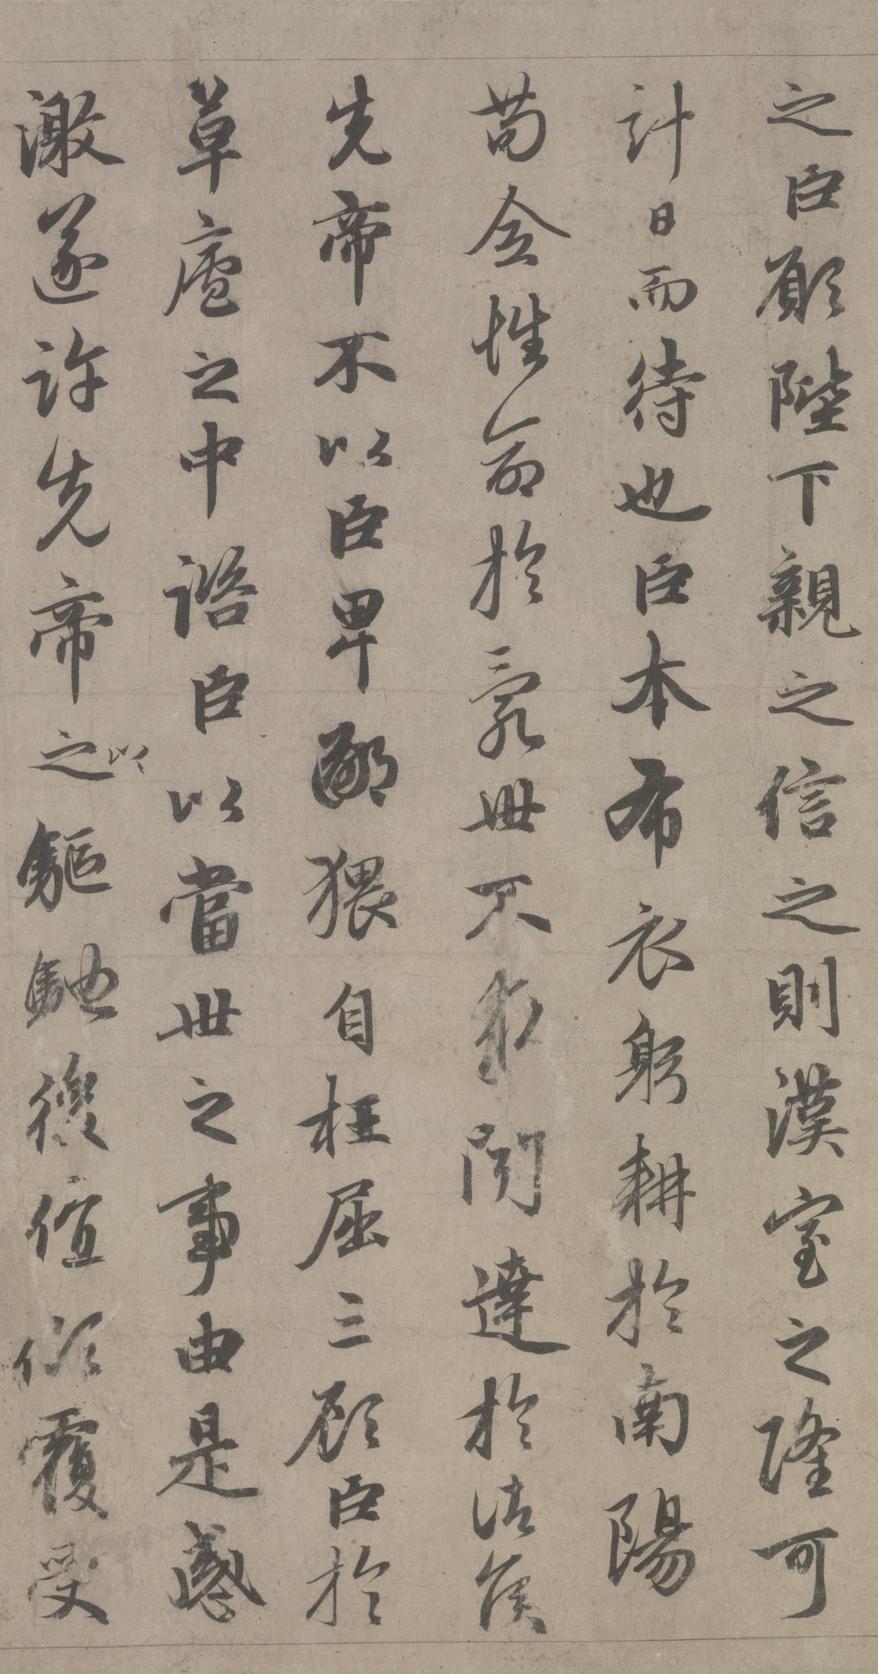 之臣願陛下親之信之則漢室之隆可
計日而待也臣本布衣躬耕於南陽
苟全性命於亂世不求聞達於諸侯
先帝不以臣卑鄙猥自枉屈三顧臣於
草廬之中諮臣以當世之事由是感
激遂許先帝之以驅馳後值傾覆受